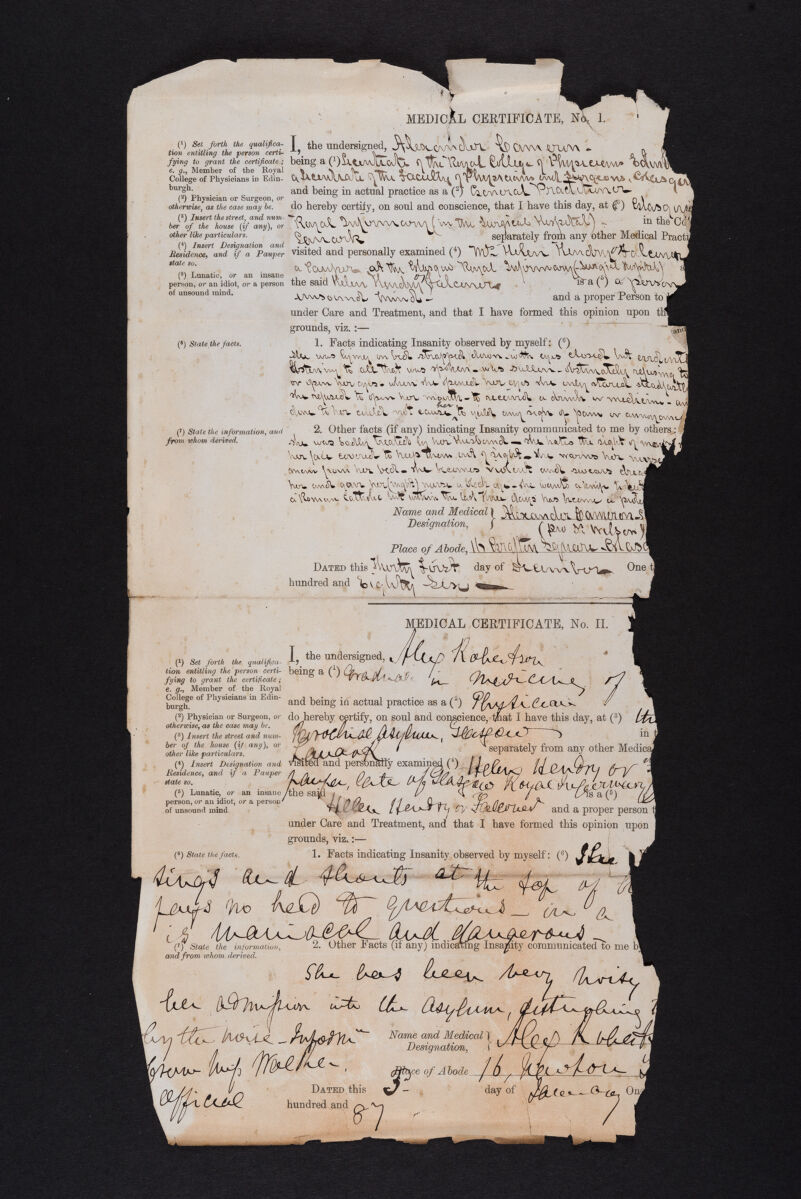 MEDICAL CERTIFICATE, No. I.
(1) Set forth the qualifica-
tion entitling the person certi-
fying to grant the certificate;
e. g., Member of the Royal
College of Physicians in Edin-
burgh.
(2) Physician or Surgeon, or
otherwise, as the case may be.
(3) Insert the street, and num-
ber of the house (if any), or
other like particulars.
(4) Insert Designation and
Residence, and if a Pauper
state so.
(5) Lunatic, or an insane
person, or an idiot, or a person
of unsound mind.
I, the undersigned, Alexander Cameron
being a (1) Licentiate of the Royal College of Physicians Edinb
a Licentiate of the Faculty of Physicians and Surgeons, Glasgow
and being in actual practice as a (2) General Practitioner
do hereby certify, on soul and conscience, that I have this day, at (3) Glasgow
Royal Infirmary (in the Surgical Hospital) in the Co
Lanark separately from any other Medical Practi
visited and personally examined (4) Mrs Helen Hendry or Falconer
a Pauper at the Glasgow Royal Infirmary (Surgical Hospital)
the said Helen Hendry or Falconer is a (5) a person
unsound mind - and a proper Person to
under Care and Treatment, and that I have formed this opinion upon th
grounds, viz. :—
(6) State the facts.
1. Facts indicating Insanity observed by myself: (6)
She was lying on bed strapped down with eyes closed but evident
listening to all that was spoken - was sullen - obstinately refusing to
or open her eyes - when she opened her eyes she only stared steadfastly
she refused to open her mouth - to receive a drink or medicine - an
done to her could not cause her to yield any sign of pain or annoyance
(7) State the information, and
from whom derived.
2. Other facts (if any) indicating Insanity communicated to me by others:
She was badly treated by her Husband - she hates the sight of men
her face covered to keep them out of sight - she warns her nurse
away from her bed - she becomes violent and swears
her and gave her (night) nurse a black eye - she wants a knife
a Roman Catholic but within the last three days has become a
Name and Medical Designation, } Alexander Cameron
(pro Dr Wilson
Place of Abode, 16 Square Glasg
DATED this Thirty First day of December One t
hundred and Eighty Six —
MEDICAL CERTIFICATE, No. II.
(1) Set forth the qualifica-
tion entitling the person certi-
fying to grant the certificate;
e. g., Member of the Royal
College of Physicians in Edin-
burgh.
(2) Physician or Surgeon, or
otherwise, as the case may be.
(3) Insert the street and num-
ber of the house (if any), or
other like particulars.
(4) Insert Designation and
Residence, and if a Pauper
state so.
(5) Lunatic, or an insane
person, or an idiot, or a person
of unsound mind.
I, the undersigned, Alex Robertson
being a (1) Graduate in medicine of
and being in actual practice as a (2) Physician
do hereby certify, on soul and conscience, that I have this day, at (3) the
Parochial Asylum, Glasgow in t
Lanark separately from any other Medica
visited and personally examined (4) Helen Hendry or
pauper, late of Glasgow Royal Infirmary
the said is a (5)
Helen Hendry or Falconer and a proper person t
under Care and Treatment, and that I have formed this opinion upon
grounds, viz. :—
(6) State the facts.
1. Facts indicating Insanity observed by myself: (6) She
sings and shouts at the top of h
pays no heed to questions - in a
is maniacal and dangerous -
(7) State the information,
and from whom derived.
2. Other Facts (if any) indicating Insanity communicated to me b
She has been very noisy
her admission into the asylum, disturbing
by the noise - Informn
Walker.
Official
Name and Medical Designation, } Alex Robert
Place of Abode 16, Newton
DATED this 3d day of January On
hundred and 87